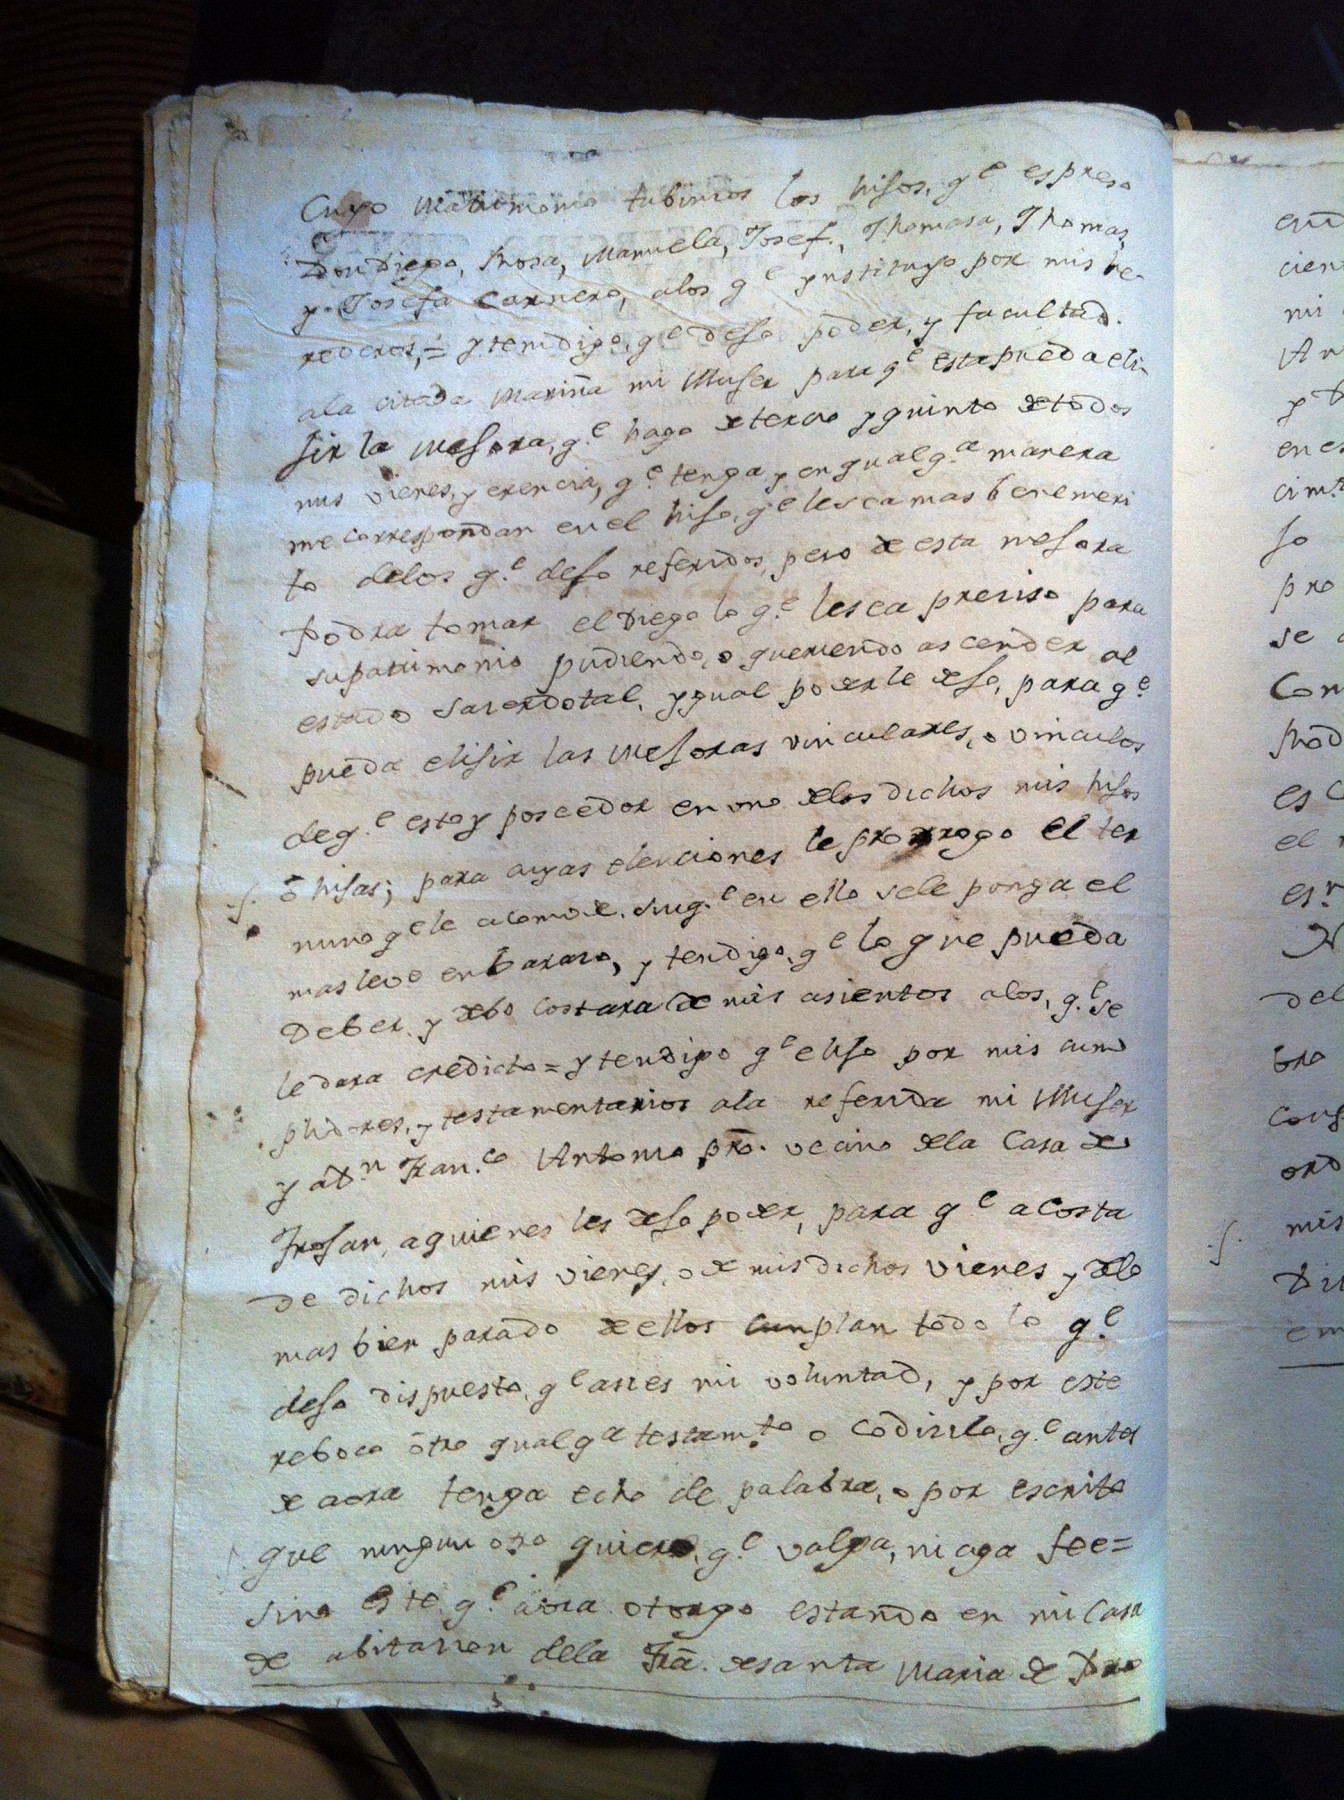 Cuyo Matrimonio tubimos los hisos, q.e espreso
Don Diego, Rosa, Manuela, Josef., Thomasa, Thomas,
y Josefa Carnero, alos q.e ynstituyo por mis he-
rederos, = ytendigo, q.e deso poder, y facultad.
ala citada Mariña mi Muser para q.e esta pueda eli-
sir la Mesora, q.e hago de tercio y quinto de todos
mis vienes, y erencia, q.e tenga y en qualq.a manera
me correspondan en el hiso, q.e le sea mas benemeri
to delos q.e deso referidos, pero de esta mesora
Podra tomar el Diego lo q.e le sea preciso para
su patrimonio pudiendo, o queriendo ascender al
estado Sacerdotal, ygual poder le deso, para q.e
pueda elisir las Mesoras vinculares, o vinculos
de q.e estoy poseedor en uno delos dichos mis hisos
ō hisas; para cuyas elecciones le prorrogo el ter
mino q.e le acomode, sin q.e en ello sele ponga el
mas leve enbarazo, ytendigo, q.e lo que pueda
Deber, y debo costara de mis asientos alos, q.e se
le dara credicto = ytendigo q.e eliso por mis cum
plidores, y testamentarios ala referida mi Muser
y a D.n Fran.co Antonio pro. vecino dela Casa de
Frosan, a quienes les deso poder, para q.e a Costa
De dichos mis vienes, o de mis dichos vienes y delo
mas bien parado de ellos cunplan todo lo q.e
deso dispuesto, q.e asi es mi voluntad, y por este
reboco ōtro qualq.a testam.to o Codicilo, q.e antes
de aora tenga echo de palabra, o por escrito
que ningun otro quiero, q.e valga, ni aga fee =
Sino este q.e aora otorgo estando en mi Casa
de abitacion dela Fra. de santa Maria de
eñ
cien
mi
en es
cim.
so
pro
se
Con
Pod
es
el
es.n
del
bro
cons
ord
mis